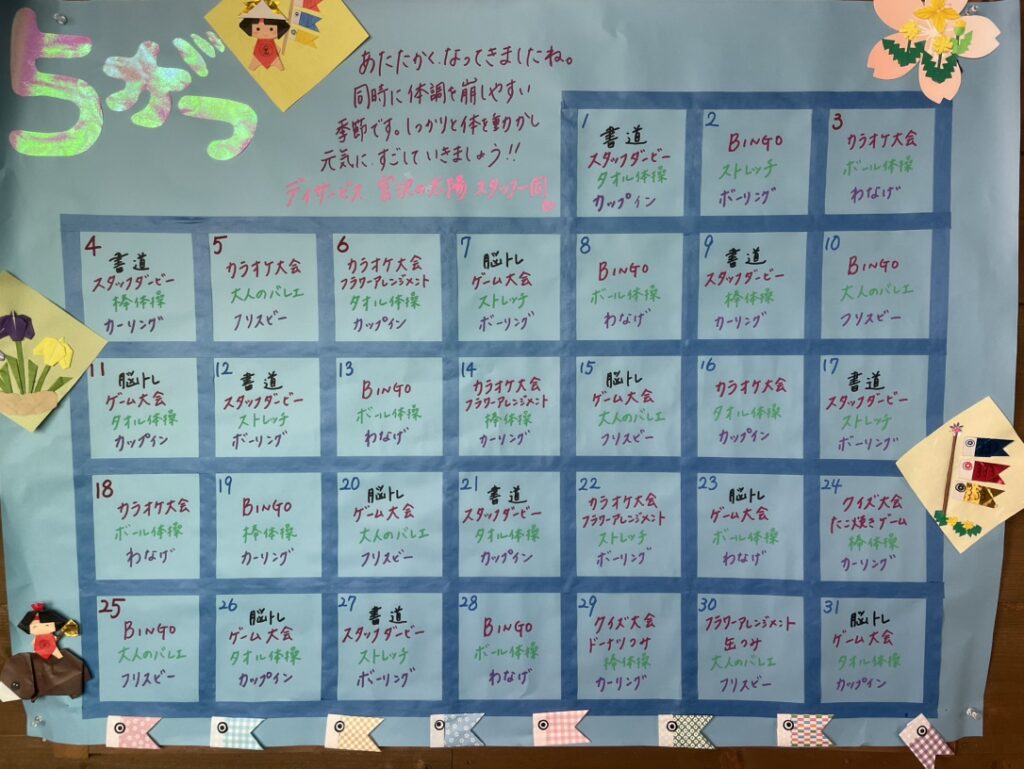 5がつ
あたたかくなってきましたね。
同時に体調を崩しやすい
季節です。しっかりと体を動かし
元気にすごしていきましょう!!
デイサービス 宮沢の太陽 スタッフ一同
1
書道
スタッフダービー
タオル体操
カップイン
2
BINGO
ストレッチ
ボーリング
3
カラオケ大会
ボール体操
わなげ
4
書道
スタッフダービー
棒体操
カーリング
5
カラオケ大会
大人のバレエ
フリスビー
6
カラオケ大会
フラワーアレンジメント
タオル体操
カップイン
7
脳トレ
ゲーム大会
ストレッチ
ボーリング
8
BINGO
ボール体操
わなげ
9
書道
スタッフダービー
棒体操
カーリング
10
BINGO
大人のバレエ
フリスビー
11
脳トレ
ゲーム大会
タオル体操
カップイン
12
書道
スタッフダービー
ストレッチ
ボーリング
13
BINGO
ボール体操
わなげ
14
カラオケ大会
フラワーアレンジメント
棒体操
カーリング
15
脳トレ
ゲーム大会
大人のバレエ
フリスビー
16
カラオケ大会
タオル体操
カップイン
17
書道
スタッフダービー
ストレッチ
ボーリング
18
カラオケ大会
ボール体操
わなげ
19
BINGO
棒体操
カーリング
20
脳トレ
ゲーム大会
大人のバレエ
フリスビー
21
書道
スタッフダービー
タオル体操
カップイン
22
カラオケ大会
フラワーアレンジメント
ストレッチ
ボーリング
23
脳トレ
ゲーム大会
ボール体操
わなげ
24
クイズ大会
たこ焼きゲーム
棒体操
カーリング
25
BINGO
大人のバレエ
フリスビー
26
脳トレ
ゲーム大会
タオル体操
カップイン
27
書道
スタッフダービー
ストレッチ
ボーリング
28
BINGO
ボール体操
わなげ
29
クイズ大会
ドーナツつみ
棒体操
カーリング
30
フラワーアレンジメント
缶つみ
大人のバレエ
フリスビー
31
脳トレ
ゲーム大会
タオル体操
カップイン